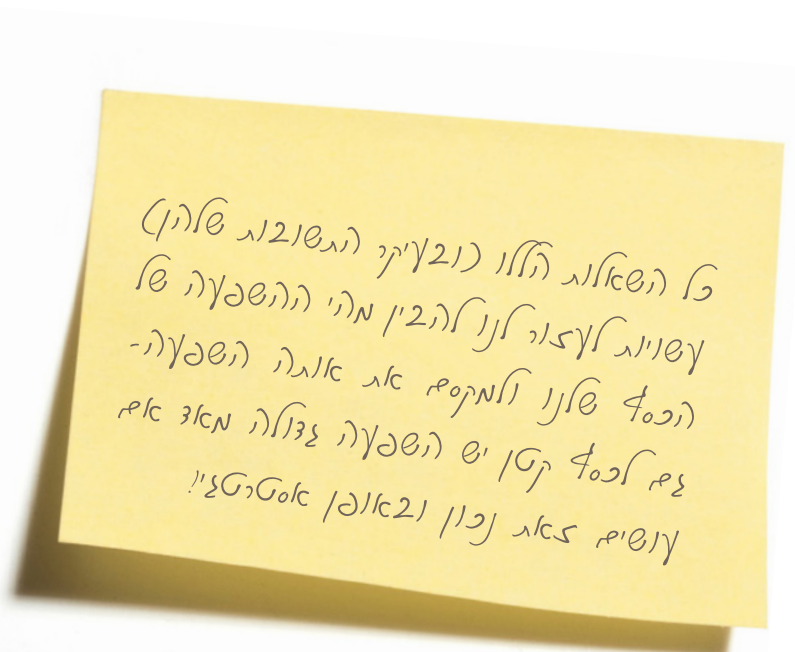 כל השאלות הללו (ובעיקר התשובות שלהן)
עשויות לעזור לנו להבין מהי ההשפעה של
הכסף שלנו ולמקסם את אותה השפעה-
גם לכסף קטן יש השפעה גדולה מאד אם
עושים זאת נכון ובאופן אסטרטגי!